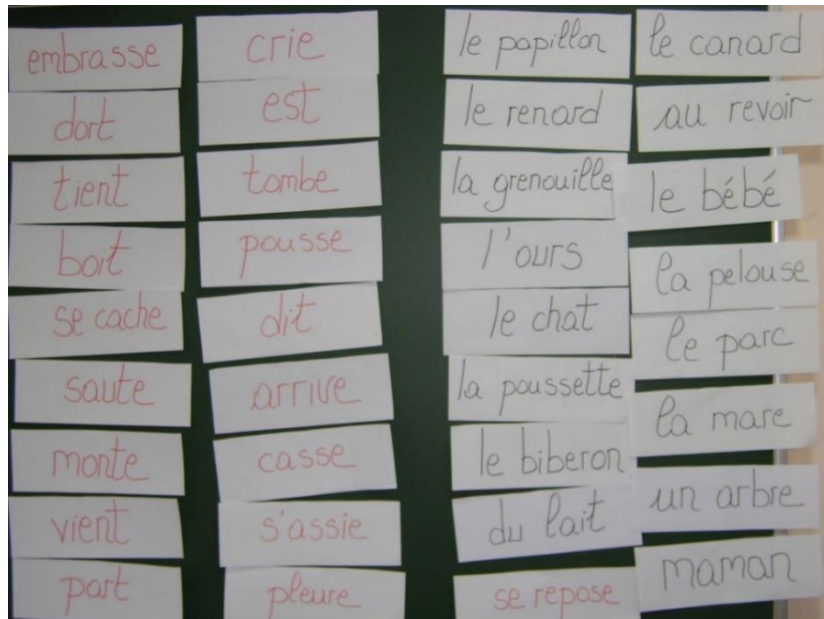 embrasse
dort
tient
boit
se cache
saute
monte
vient
part
crie
est
tombe
pousse
dit
arrive
casse
s'assie
pleure
le papillon
le renard
la grenouille
l'ours
le chat
la poussette
le biberon
du lait
se repose
le canard
au revoir
le bébé
la pelouse
le parc
la mare
un arbre
maman